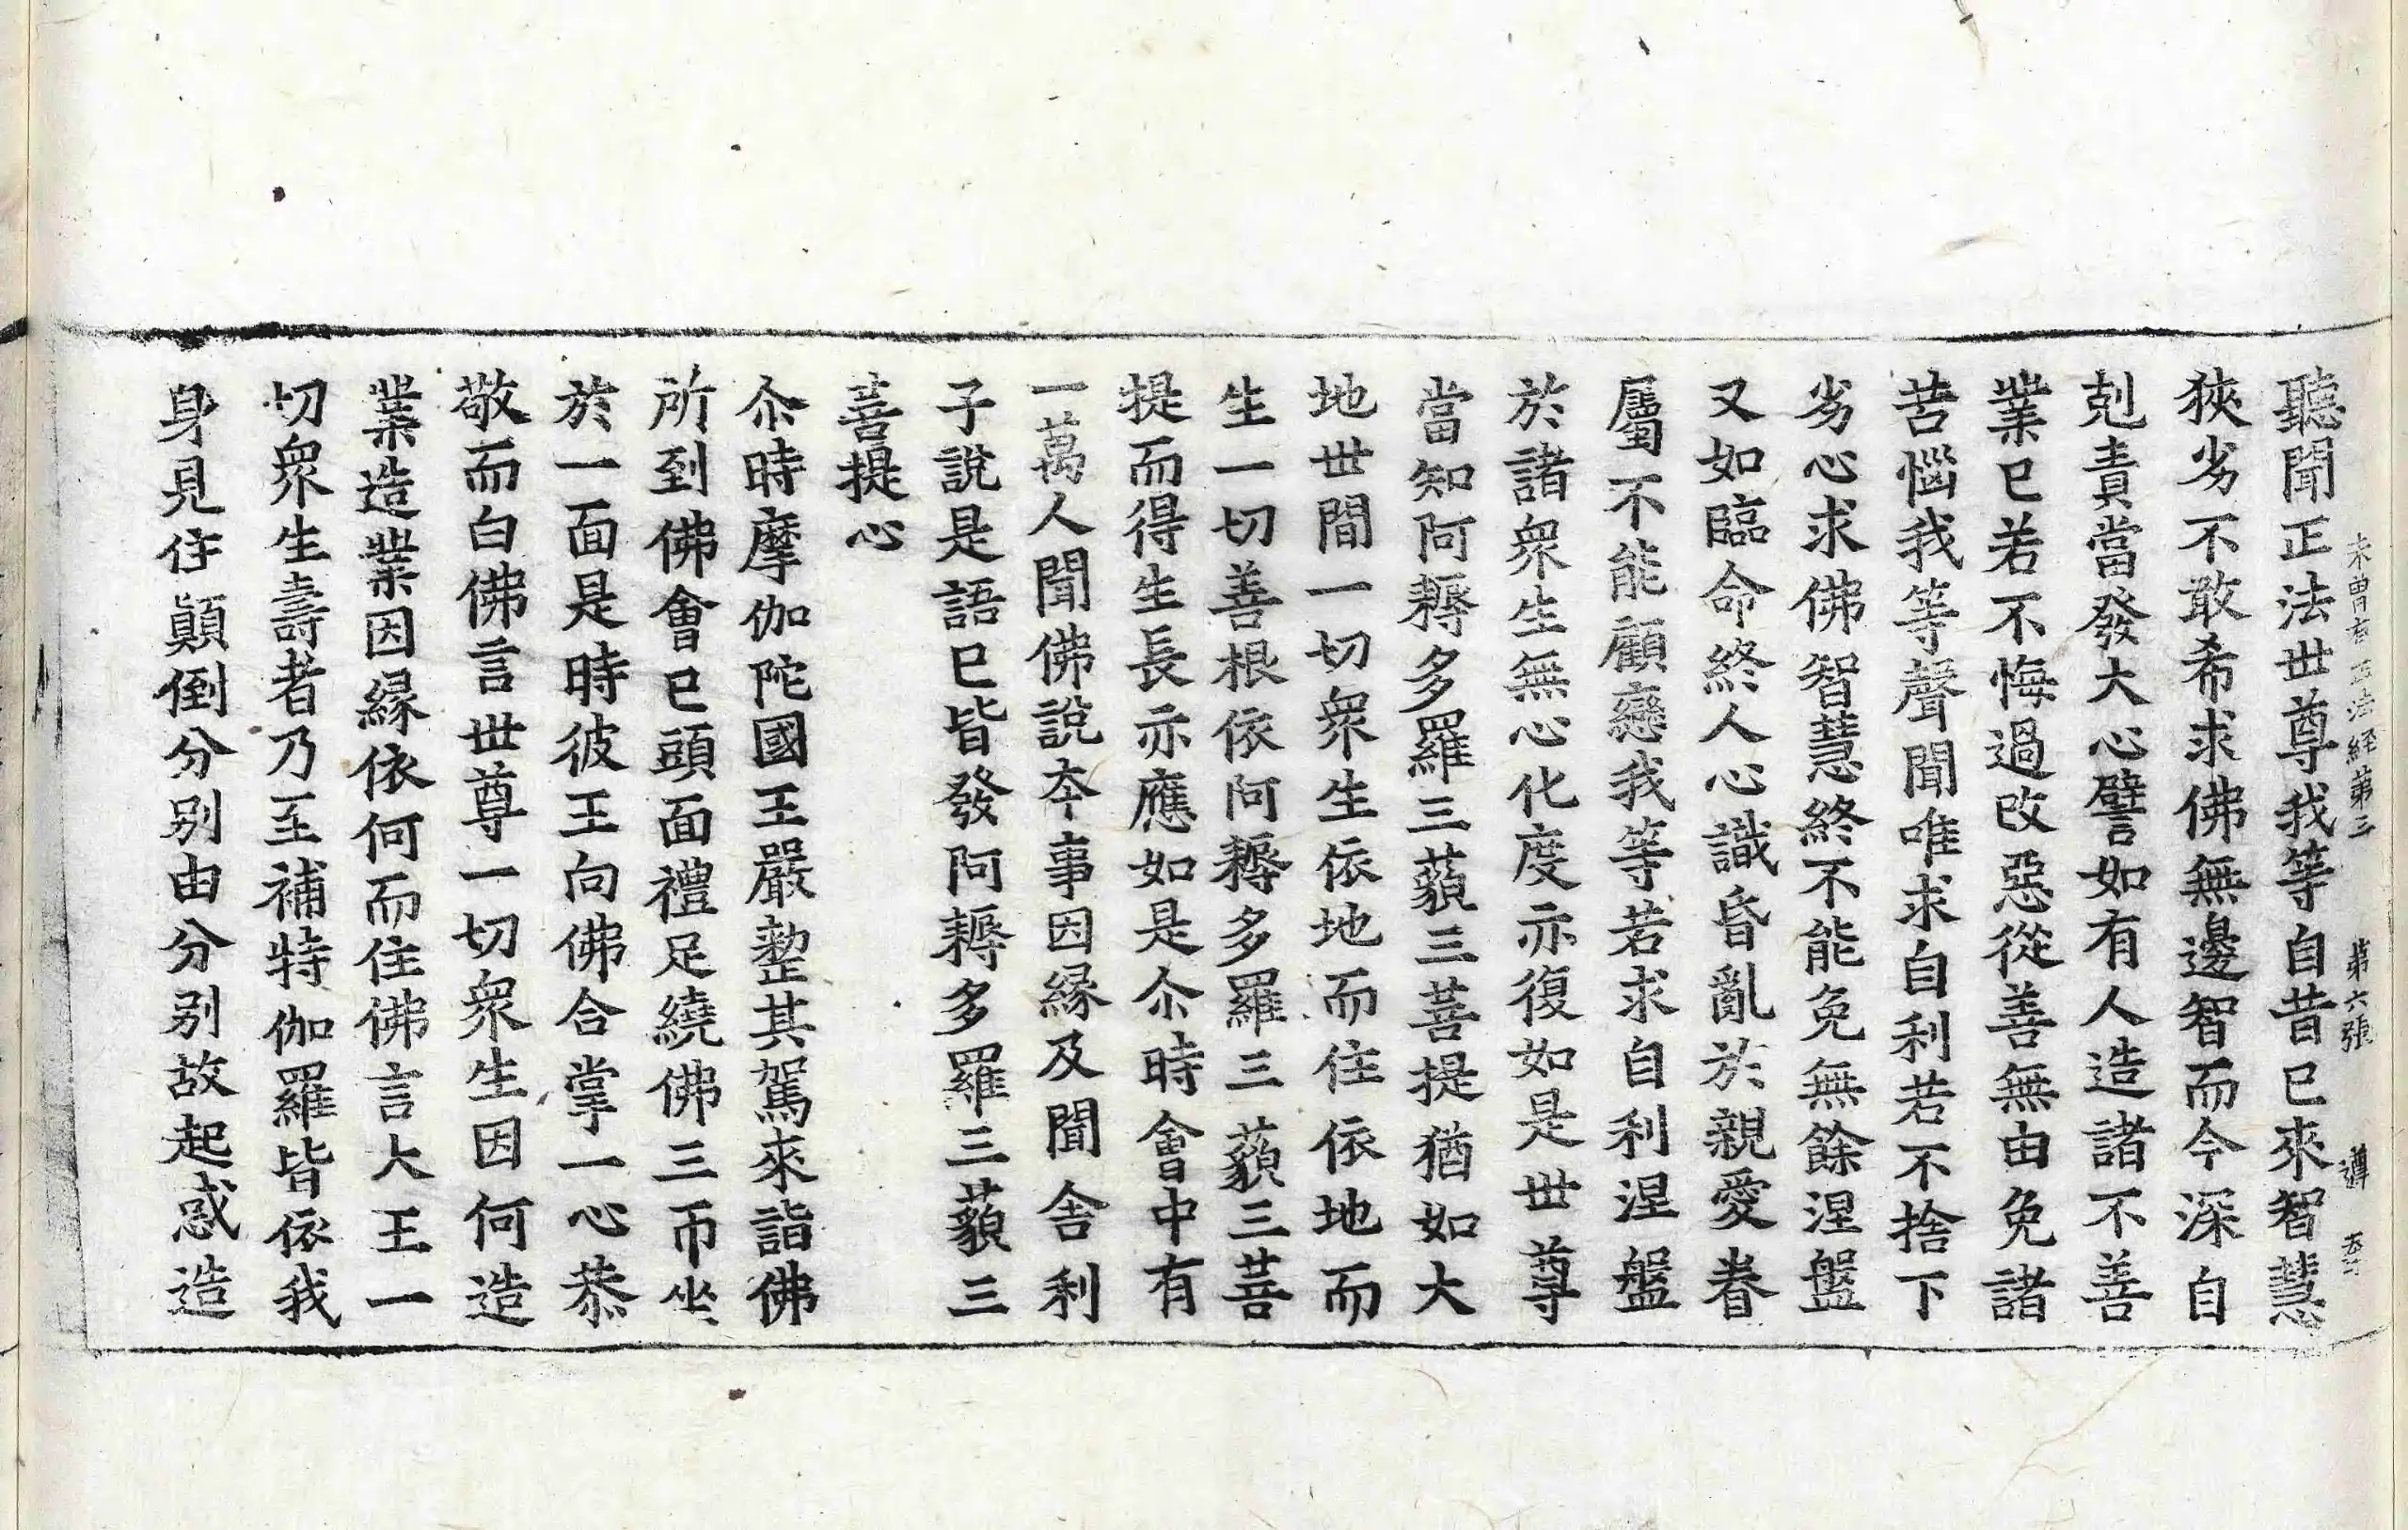 未曾有正法經第三　第六張　遵
聽聞正法世尊我等自昔已來智慧
狹劣不敢希求佛無邊智而今深自
剋責當發大心譬如有人造諸不善
業已若不悔過改惡從善無由免諸
苦惱我等聲聞唯求自利若不捨下
劣心求佛智慧終不能免無餘涅盤
又如臨命終人心識昏亂於親愛眷
屬不能顧戀我等若求自利涅盤
於諸衆生無心化度亦復如是世尊
當知阿耨多羅三藐三菩提猶如大
地世間一切衆生依地而住依地而
生一切善根依阿耨多羅三藐三菩
提而得生長亦應如是尒時會中有
一萬人聞佛說夲事因縁及聞舍利
子說是語已皆發阿耨多羅三藐三
菩提心
尒時摩伽陀國王嚴整其駕來詣佛
所到佛會已頭面禮足繞佛三帀坐
於一面是時彼王向佛合掌一心恭
敬而白佛言世尊一切衆生因何造
業造業因縁依何而住佛言大王一
切衆生壽者乃至補特伽羅皆依我
身見住顚倒分别由分别故起惑造